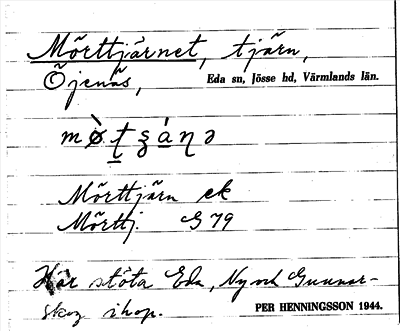 Mörttjärnet, tjärn,
Öjenäs, Eda sn, Jösse hd, Värmlands län.
Mörttjärn ek
Mörttj. G 79
Här stöta Eda, Ny och Gunnar-
skog ihop. PER HENNINGSSON 1944.